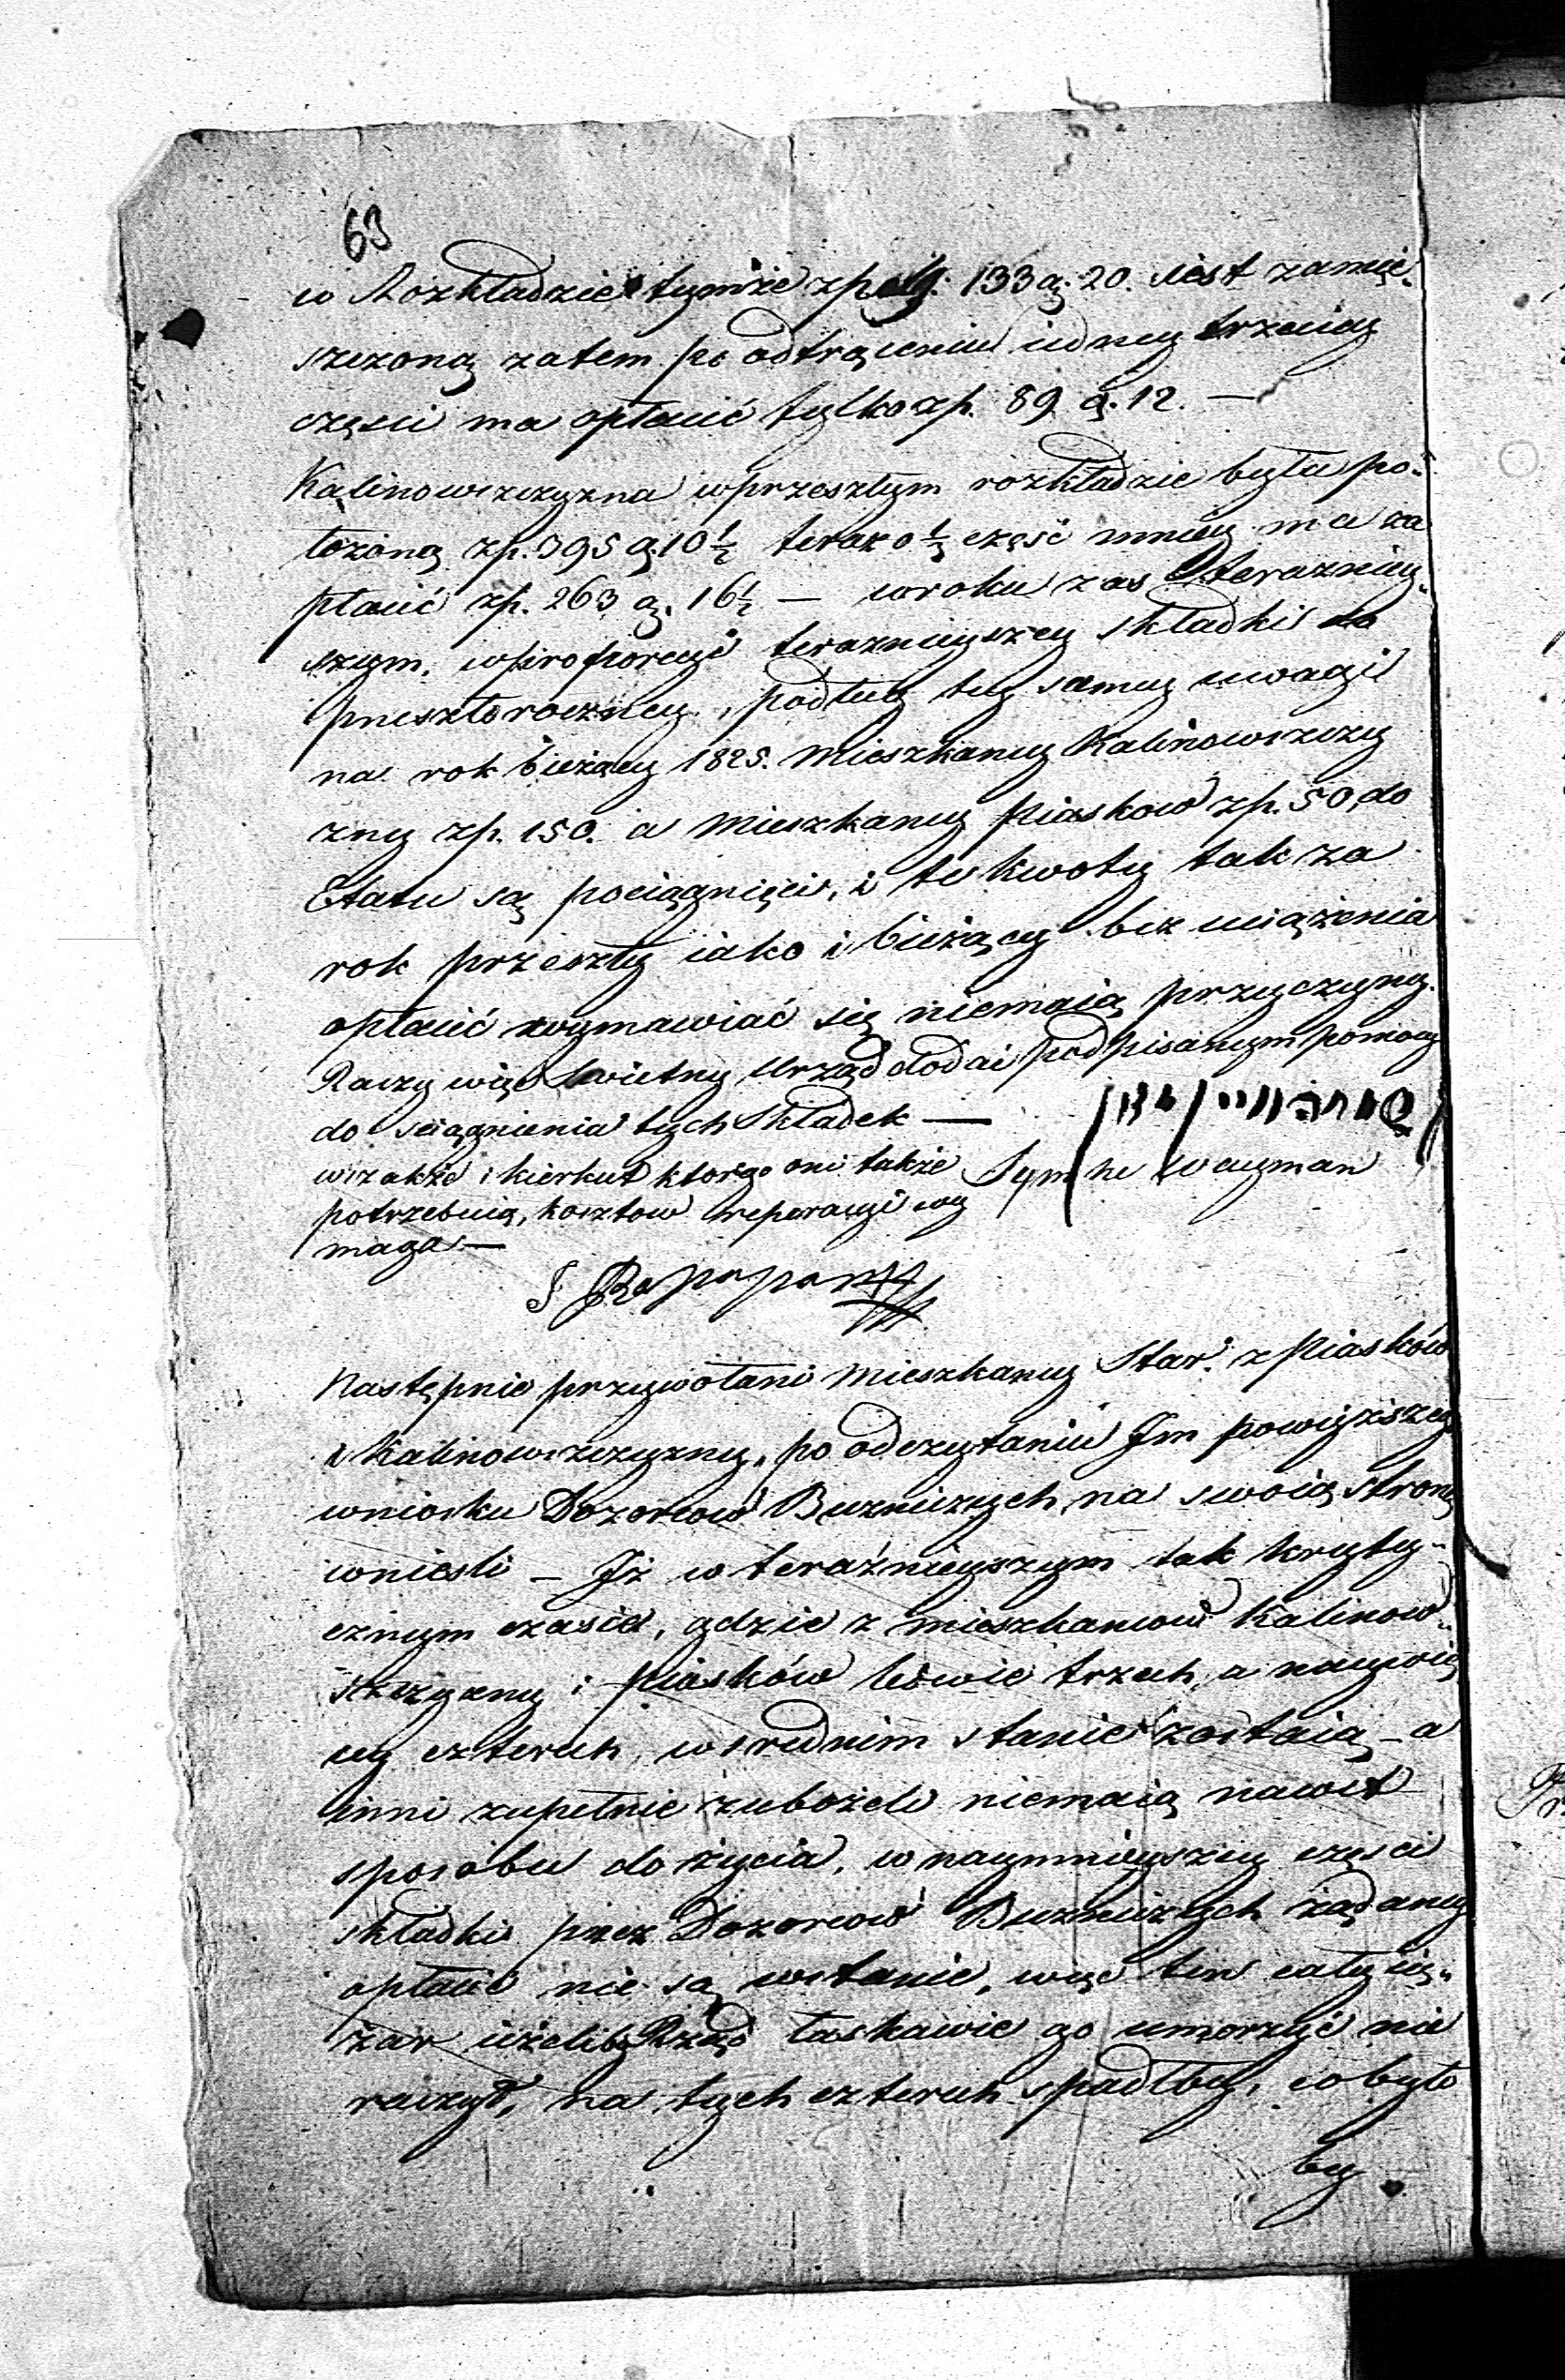 63
w Rozkładzie tymże zp. 133 g. 20. iest zamie¬
szczoną zatem po odtrąceniu iedney trzeciey
częsci ma opłacić tylko zp. 89 g. 12. —
Kalinowszczyzna w przeszłym rozkładzie była po¬
łożoną zp. 395 g. 10½ teraz o ⅓ część mniey ma za
płacić zp. 263 g. 16½ — w roku zas terazniey¬
szym, w proporcyi teraznieyszey składki do
przeszłoroczney, podług tey samey uwagi
na rok bieżący 1825. Mieszkancy Kalinowszczy
zny zp. 150. a Mieszkancy Piaskow zp. 50 do
Etatu są pociągnięci, i te kwoty tak za
rok przeszły iako i bieżący bez uciążenia
opłacić wymawiać się niemaią przyczyny.
Raczy więc Swietny Urząd dodai podpisanym pomocy
do sciągnienia tych Składek —
wszakże i kierkut ktorego oni także
Symche Wayman
potrzebuią, kosztow reperacyi wy
maga —
S Rapaport
Następnie przywołani Mieszkancy Star. z Piasków
i Kalinowszczyzny, po odczytaniu Im powyższego
wniosku Dozorcow Buzniczych na swoią stronę
wniesli — Iż w teraźnieyszym tak kryty¬
cznym czasie, gdzie z mieszkancow Kalinow¬
szczyzny i Piasków ledwie trzech, a naywię
cey czterech, w srednim stanie zostaią — a
inni zupełnie zubożele niemaią nawet
sposobu do życia, w naymnieyszey częsci
składki przez Dozorcow Buzniczych żądaney
opłacić nie są wstanie, więc ten cały cię¬
żar ieżeliby Rząd łaskawie go umorzyć nie
raczył, na tych czterech spadłby, co było
by